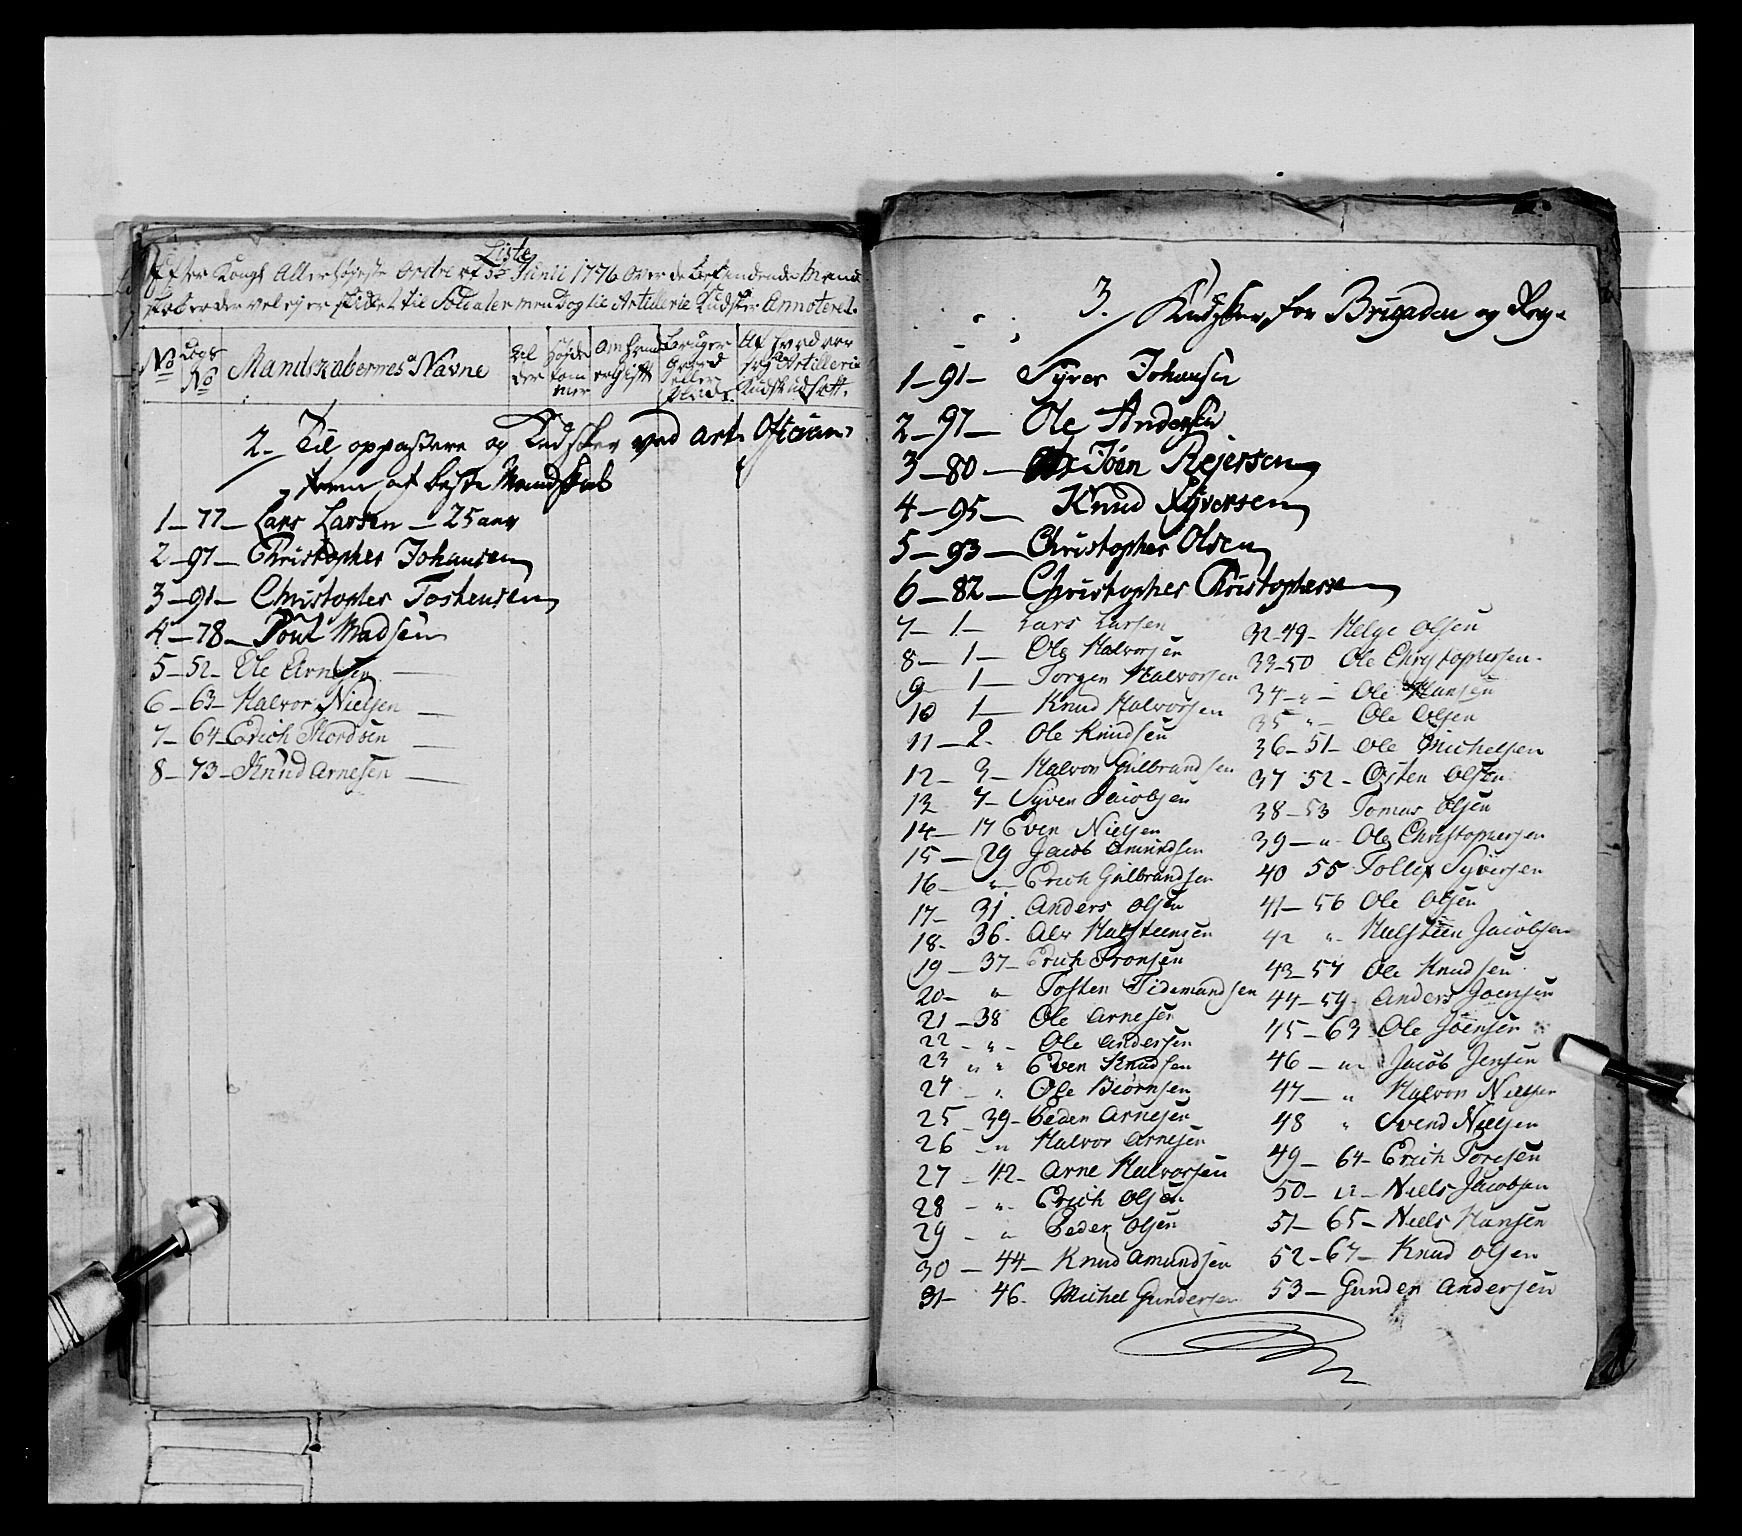 Liste
Efter Kongl Allerhøyeste Ordre af 5te Junii 1776 over de befindende Mand
skaber der vel ej er skikket til Soldater men dog til Artillerie Kudsker Annoteret.
No
Lægs No
Mandskabernes Navne
Al der
Høyde tom mer
Om hand er gift
Bruger Gaard eller Plads.
Af hvad aar sog Artillerie Kudsk udsatt.
2. Til oppastere og Kudsker ved Art. Ofician
teren af beste Mandskab
1 - 77 - Lars Larsen - 25 aar
2 - 97 - Christopher Johansen
3 - 91 - Christopher Tostensen
4 - 78 - Poul Madsen
5 - 52 - Ole Arnesen
6 - 63 - Halvor Nielsen
7 - 64 - Erich Thordsen
8 - 73 - Knud Arnesen
3. Kudsker for Brigaden og Reg.
1 - 91 - Syver Johansen
2 - 97 - Ole Andersen
3 - 80 - Jöen Rejersen
4 - 95 - Knud Syversen
5 - 93 - Christopher Olsen
6 - 82 - Christopher Christophersen
7 - 1 - Lars Larsen
8 - 1 - Ole Halvorsen
9 1 - Torgen Halvorsen
10 1 - Knud Halvorsen
11 - 2 - Ole Knudsen
12 - 3 - Halvor Gulbrandsen
13 7 - Syven Jacobsen
14 - 17 Even Nielsen
15 - 29 Jacob Amundsen
16 - " - Erich Gulbrandsen
17 - 31. Anders Olsen
18 - 36 - Alv Halsteensen
19 - 37 - Erich Tronsen
20 - " Tosten Tidemandsen
21 - 38 Ole Arnesen
22 - " - Ole Andersen
23 " " Even Knudsen
24 - " Ole Biörnsen
25 - 39 - Peder Arnesen
26 - " Halvor Arnesen
27 - 42 - Arne Halvorsen
28 - " - Erich Olsen
29 - " Peder Olsen
30 - 44 - Knud Amundsen
31 - 46 - Michel Gundersen
32 - 49 - Helge Olsen
33 - 50 Ole Christophersen
34 - " - Ole Hansen
35 " - Ole Olsen
36 - 51 - Ole Michelsen
37 52 - Östen Olsen
38 - 53 Tomas Olsen
39 - " - Ole Christophersen
40 55 Tollef Syversen
41 - 56 Ole Olsen
42 " - Halsteen Jacobsen
43 - 57 Ole Knudsen
44 - 59 - Anders Joensen
45 - 63 - Ole Joensen
46 - " - Jacob Jensen
47 - " Halvor Nielsen
48 " Svend Nielsen
49 - 64 - Erich Toresen
50 - " - Niels Jacobsen
51 - 65 - Niels Hansen
52 - 67 - Knud Olsen
53 - Gunder Andersen